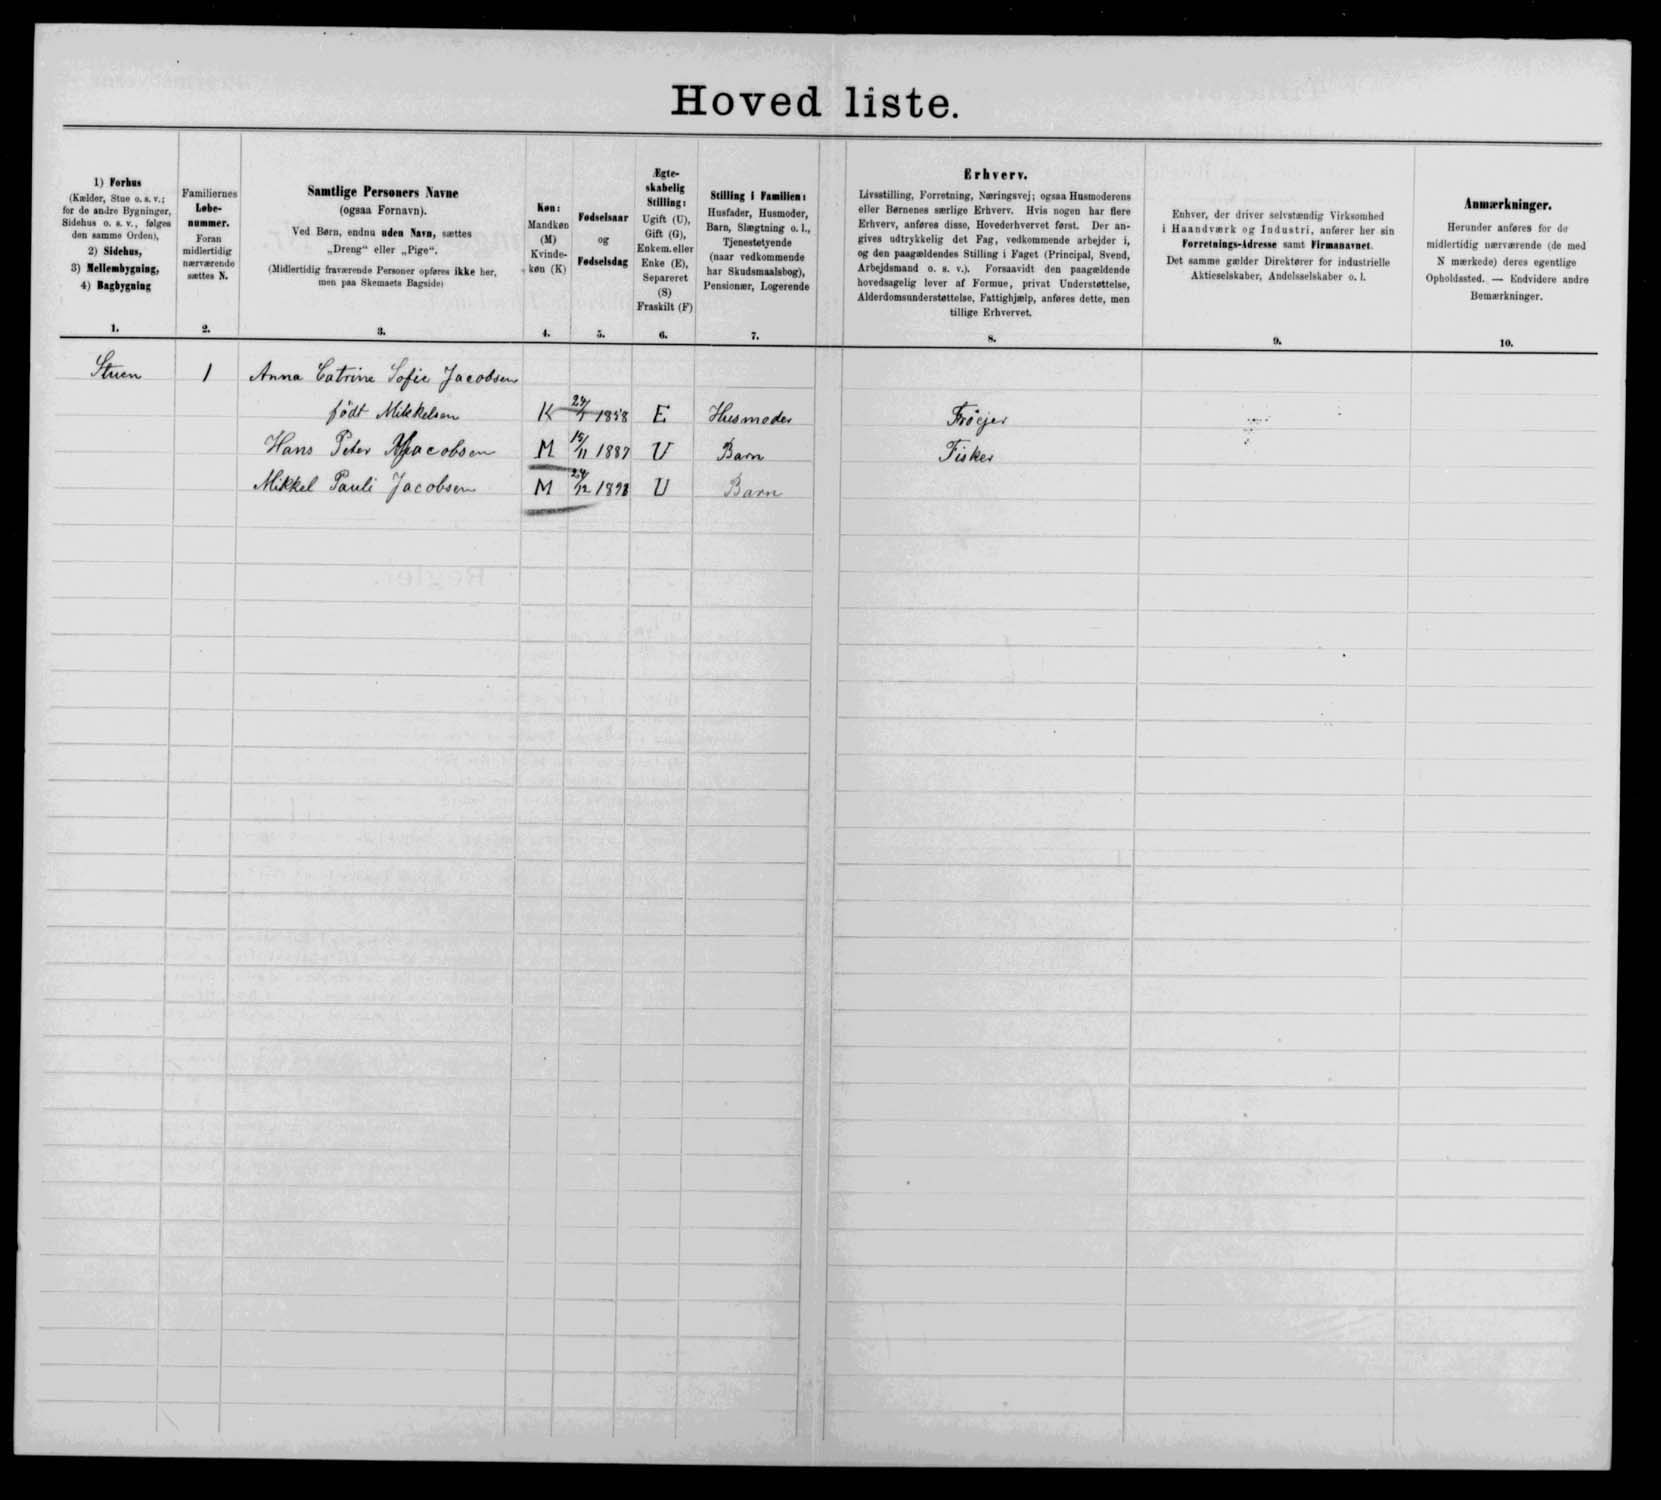 Hoved liste.
1) Forhus
(Kælder, Stue o. s. v.;
for de andre Bygninger,
Sidehus o. s. v., følges
den samme Orden),
2) Sidehus,
3) Mellembygning,
4) Bagbygning
1.
Familiernes
Løbe-
nummer.
Foran
midlertidig
nærværende
sættes N.
2.
Samtlige Personers Navne
(ogsaa Fornavn).
Ved Børn, endnu uden Navn, sættes
„Dreng“ eller „Pige“.
(Midlertidig fraværende Personer opføres ikke her,
men paa Skemaets Bagside)
3.
Køn:
Mandkøn
(M)
Kvinde-
køn (K)
4.
Fødselsaar
og
Fødselsdag
5.
Ægte-
skabelig
Stilling:
Ugift (U),
Gift (G),
Enkem. eller
Enke (E),
Separeret
(S)
Fraskilt (F)
6.
Stilling i Familien:
Husfader, Husmoder,
Barn, Slægtning o. l.,
Tjenestetyende
(naar vedkommende
har Skudsmaalsbog),
Pensionær, Logerende
7.
Erhverv.
Livsstilling, Forretning, Næringsvej; ogsaa Husmoderens
eller Børnenes særlige Erhverv. Hvis nogen har flere
Erhverv, anføres disse, Hovederhvervet først. Der an-
gives udtrykkelig det Fag, vedkommende arbejder i,
og den paagældendes Stilling i Faget (Principal, Svend,
Arbejdsmand o. s. v.). Forsaavidt den paagældende
hovedsagelig lever af Formue, privat Understøttelse,
Alderdomsunderstøttelse, Fattighjælp, anføres dette, men
tillige Erhvervet.
8.
Enhver, der driver selvstændig Virksomhed
i Haandværk og Industri, anfører her sin
Forretnings-Adresse samt Firmanavnet.
Det samme gælder Direktører for industrielle
Aktieselskaber, Andelsselskaber o. l.
9.
Anmærkninger.
Herunder anføres for de
midlertidig nærværende (de med
N mærkede) deres egentlige
Opholdssted. — Endvidere andre
Bemærkninger.
10.
Stuen 1 Anna Catrine Sofie Jacobsen
født Mikkelsen K 1858 E Husmoder
Hans Peter Jacobsen M 15/11 1887 U Barn Fisker
Mikkel Pauli Jacobsen M 24/12 1898 U Barn